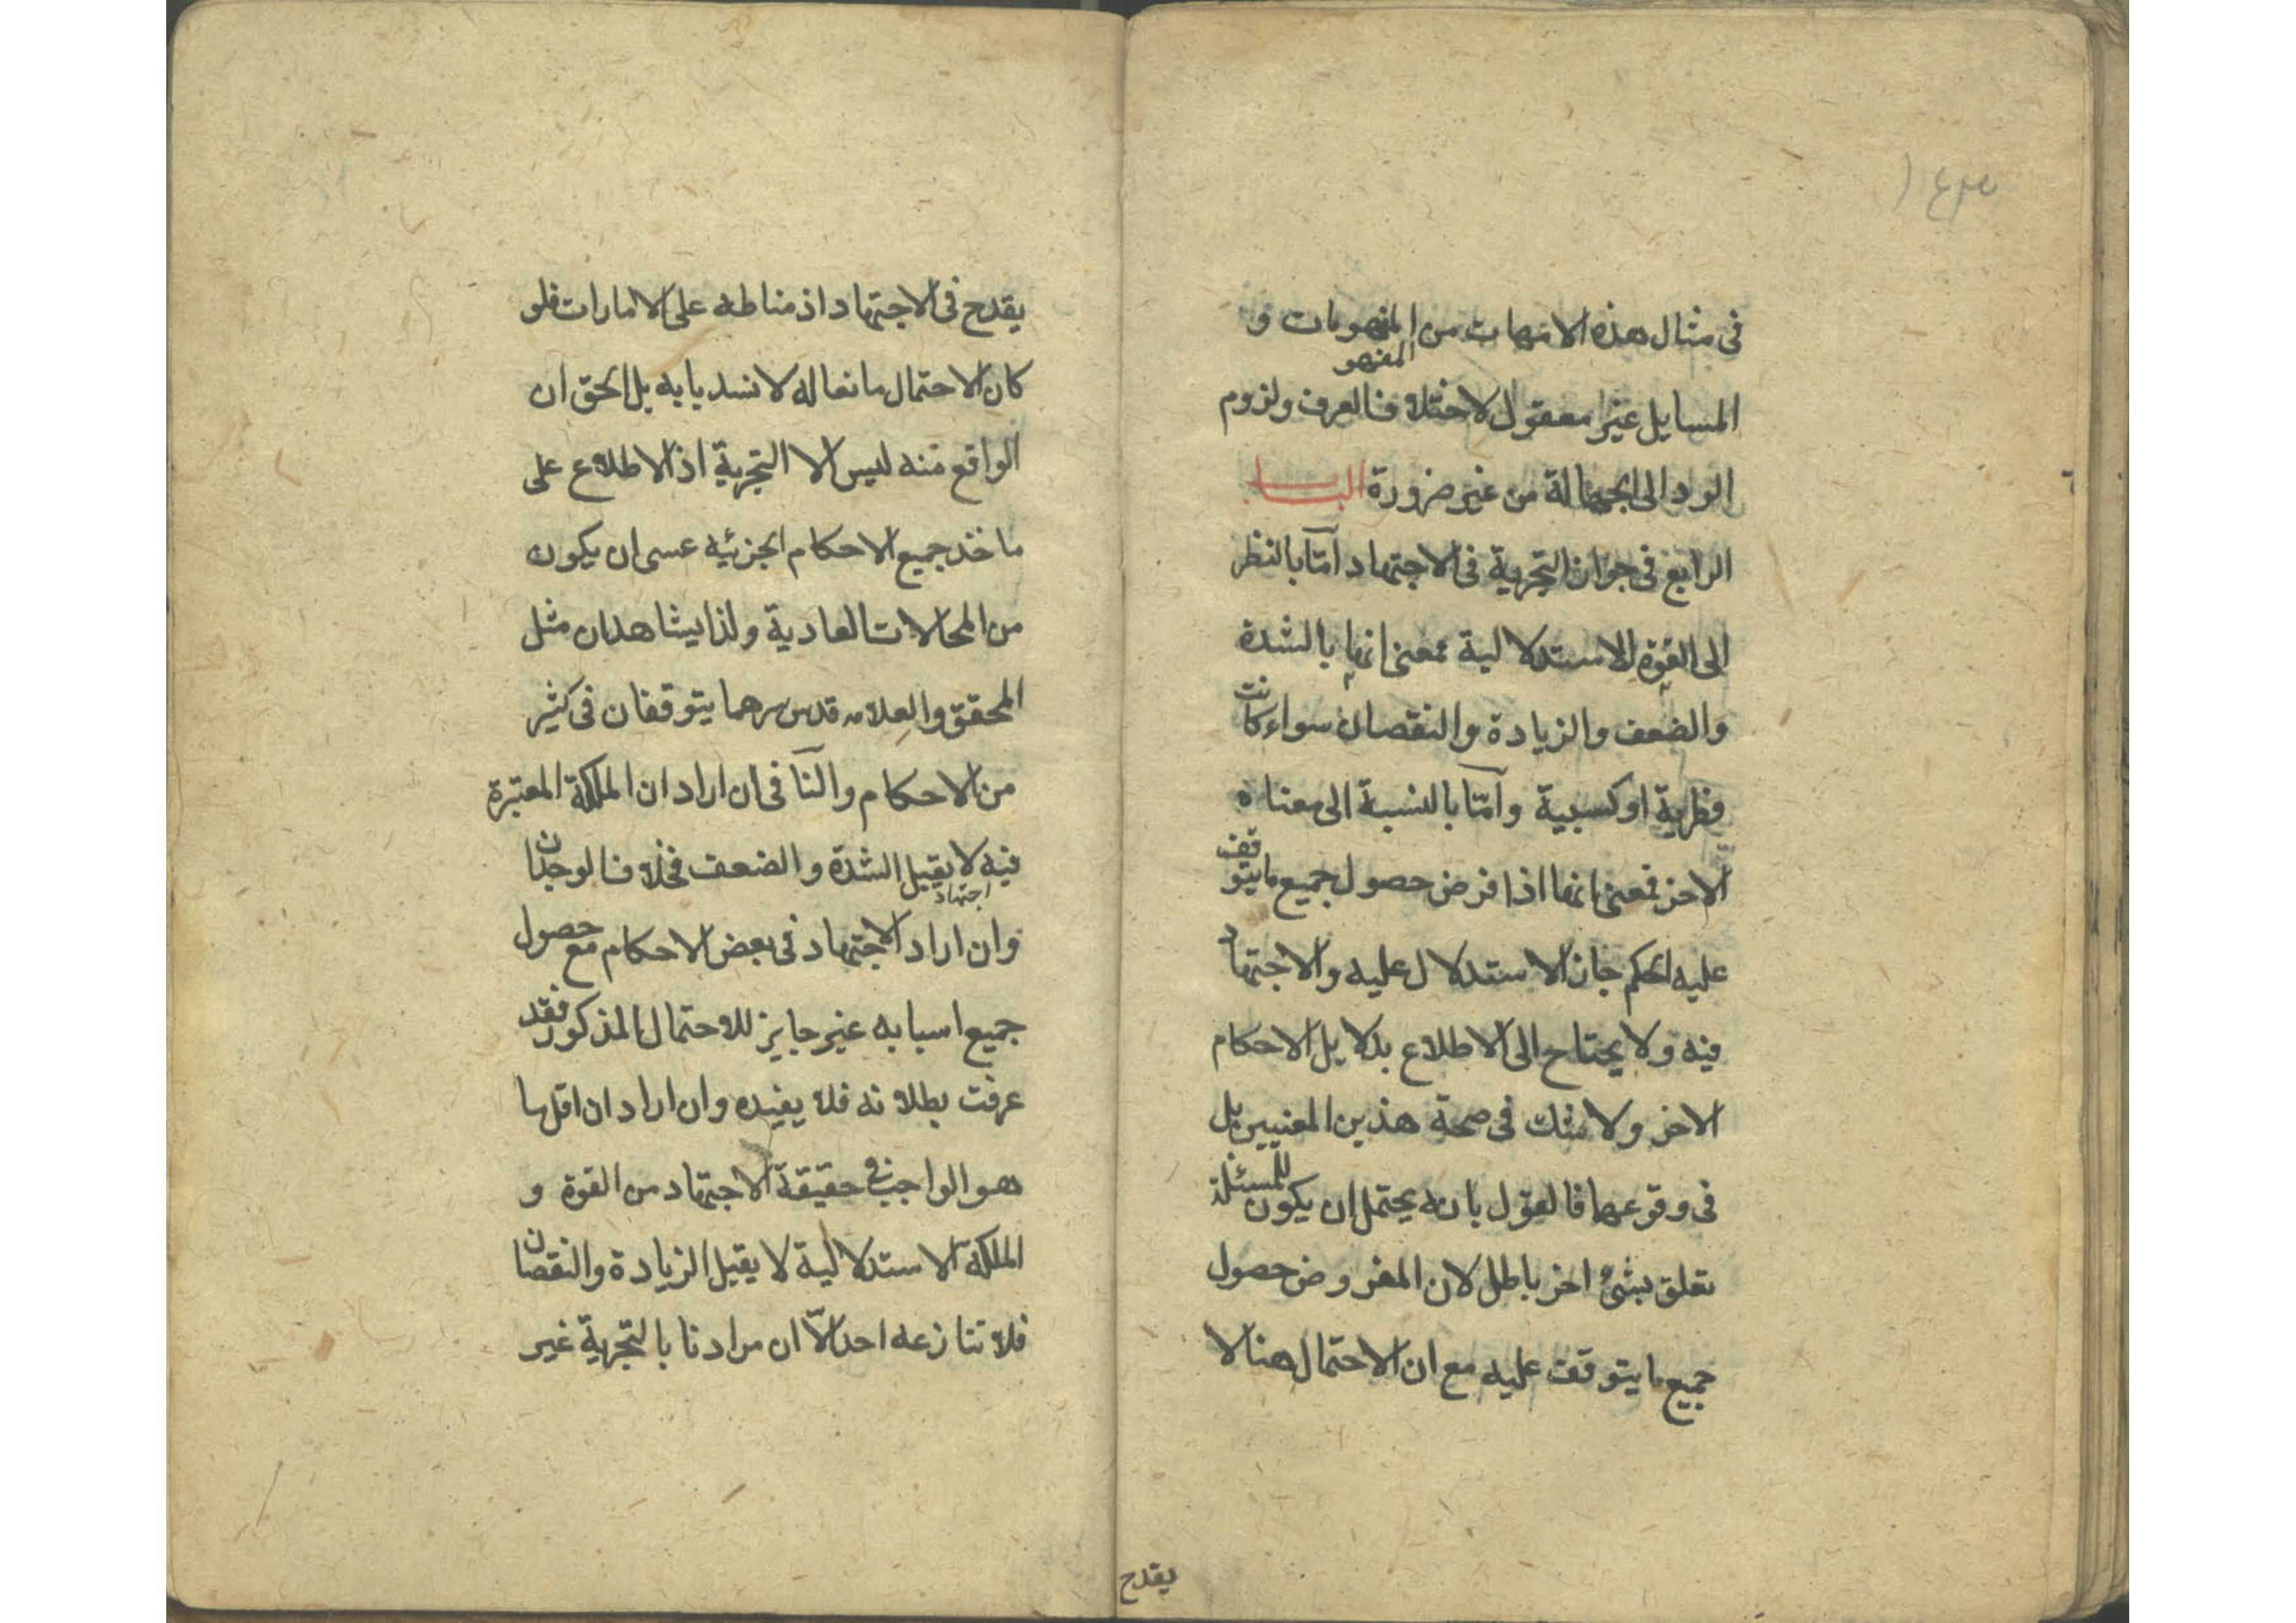 فى مثال هذه الامهات من المفهومات و
المفهو
المسايل غير معقول لاختلاف العرف ولزوم
الرد الى الجهالة من غير ضرورة البــاب
الرابع فى جواز التجزية فى الاجتهاد امّا بالنظر
الى القوة الاستدلالية بمعنى انها بالشدة
والضعف والزيادة والنقصان سواء كانت
فطرية او كسبية وامّا بالنسبة الى معناه
الاخر فمعنى انها اذا فرض حصول جميع ما يتوقف
عليه الحكم جاز الاستدلال عليه والاجتهاد
فيه ولا يحتاح الى الاطلاع بدلايل الاحكام
الاخر ولا شك فى صحة هذين المعنيين بل
فى وقوعهما فالقول بانه يحتمل ان يكون للمسئلة
تعلق بشئ اخر باطل لان المفروض حصول
جميع ما يتوقف عليه مع ان الاحتمال هنا لا
يقدح
يقدح فى الاجتهاد اذ مناطه على الامارات فلو
كان الاحتمال مانعا له لانسد بابه بل الحق ان
الواقع منه ليس الا التجزية اذ الاطلاع على
ماخذ جميع الاحكام الجزئيه عسى ان يكون
من المحالات العادية ولذا يشاهد ان مثل
المحقق والعلامه قدس سرهما يتوقفان فى كثير
من الاحكام والنّافى ان اراد ان الملكة المعتبرة
فيه لا يقبل الشدة والضعف فخلاف الوجدان
اجتهاد
وان اراد الاجتهاد فى بعض الاحكام مع حصول
جميع اسبابه غير جايز للاحتمال المذكور فقد
عرفت بطلانه فلا يفيده وان اراد ان اقلها
هو الواجب فى حقيقة الاجتهاد من القوة و
الملكة الاستدلالية لا يقبل الزيادة والنقصان
فلا تنازعه احد الّا ان مرادنا بالتجزية غير